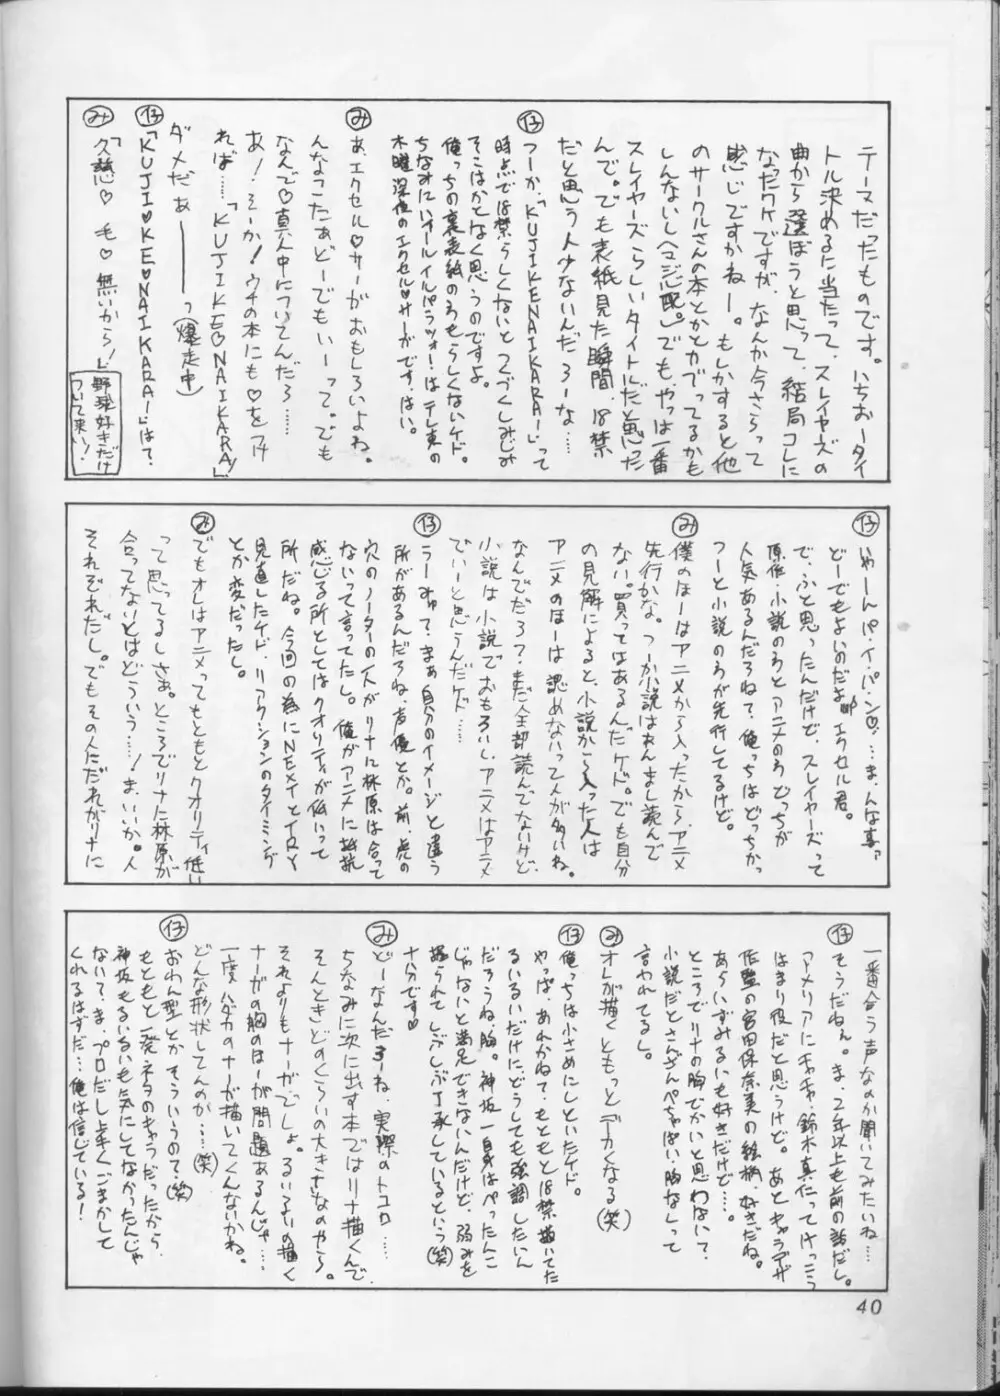 テーマだったものです。いちおータイ
トル決めるに当たって、スレイヤーズの
曲から選ぼうと思って、結局コレに
なったワケですが、なんか今さらって
感じですかねー。もしかすると他
のサークルさんの本とかとカブってるかも
しんないし(マジ心配。)でも、やっぱ一番
スレイヤーズらしいタイトルだと思った
んで。でも表紙見た瞬間、18禁
だと思う人少ないんだろーな……
㋑つーか、「KUJIKENAIKARA!」って
時点で18禁らしくないとつくづくしみじみ
そこはかとなく思うのですよ。
俺っちの裏表紙のほうもらしくないケド。
ちなみに「オールイルパラッツォ!」はテレ東の
木曜深夜のエクセル♡サーガです、はい。
㋯あ、エクセル♡サーガおもしろいよね。
んなこたぁどーでもいーって。でも
なんで♡真ん中についてんだろ……
あ!そーか!ウチの本にも♡をつけ
れば……「KUJIKE♡NAIKARA!」
ダメだぁ――――っ(爆走中)
「KUJI♡KE♡NAI♡KARA!」は?
㋯「久慈♡毛♡無いから!」
野球好きだけ
ついて来い!
いやーんパ・イ・パ・ン♡…ま、んな事ァ
どーでもよいのだよ エクセル君。
で、ふと思ったんだけど、スレイヤーズって
原作・小説のほうとアニメのほうどっちが
人気あるんだろね?俺っちはどっちかっ
つーと小説のほうが先行してるけど。
㋯僕のほーはアニメから入ったから、アニメ
先行かな。つーか小説はあんまし読んで
ない。買ってはあるんだケド。でも自分
の見解によると、小説から入った人は
アニメのほーは、認めないって人が多いね。
なんでだろ?まだ全部読んでないけど、
小説は小説でおもろいし、アニメはアニメ
でいーと思うんだケド……
うーみゅ?まぁ自分のイメージと違う
所があるんだろね、声優とか。前、虎の
穴のノーターの人がリナに林原は合って
ないって言ってたし。俺がアニメに抵抗
感じる所としてはクオリティが低いって
所だね。今回の為にNEXTとTRY
見直したケド、リアクションのタイミング
とか変だったし。
㋯でもオレはアニメってもともとクオリティ低い
って思ってるしさぁ。ところでリナに林原が
合ってないとはどういう……!まいいか。人
それぞれだし。でもその人だれがリナに
一番合う声なのか聞いてみたいね……
そうだねぇ。ま、2年以上も前の話だし。
アメリアにキャキャ、鈴木真仁ってけっこう
はまり役だと思うけど。あとキャラデザ
作監の宮田保奈美の絵柄、好きだね。
あらいずみるいも好きだけど…。
ところでリナの胸でかいと思わない?
小説だとさんざんぺちゃぱい胸なしって
言われてるし。
㋯オレが描くともっとデカくなる(笑)
俺っちは小さめにしといたケド。
やっぱ、あれかね?もともと18禁描いてた
るいるいだけに、どうしても強調したいん
だろうね、胸。神坂一自身はぺったんこ
じゃないと満足できないんだけど、弱みを
握られてしぶしぶ了承しているという(笑)
十八分です♡
㋯どーなんだろーね、実際のトコロ……
ちなみに次に出す本ではリナ描くんで、
そんときどのくらいの大きさなのやら。
それよりもナーガでしょ。るいるいの描く
ナーガの胸のほーが問題あるんじゃ……
一度ハダカのナーガ描いてくんないかね。
どんな形状してんのか……(笑)
おわん型とかそういうので?(笑)
もともと一発ネタのキャラだったから、
神坂もるいるいも気にしてなかったんじゃ
ない?ま、プロだし上手くごまかして
くれるはずだ…俺は信じている!
40